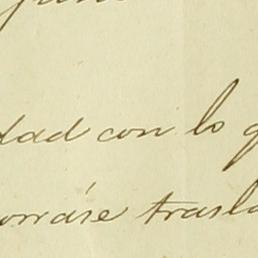 dad con lo q
orráse trasla